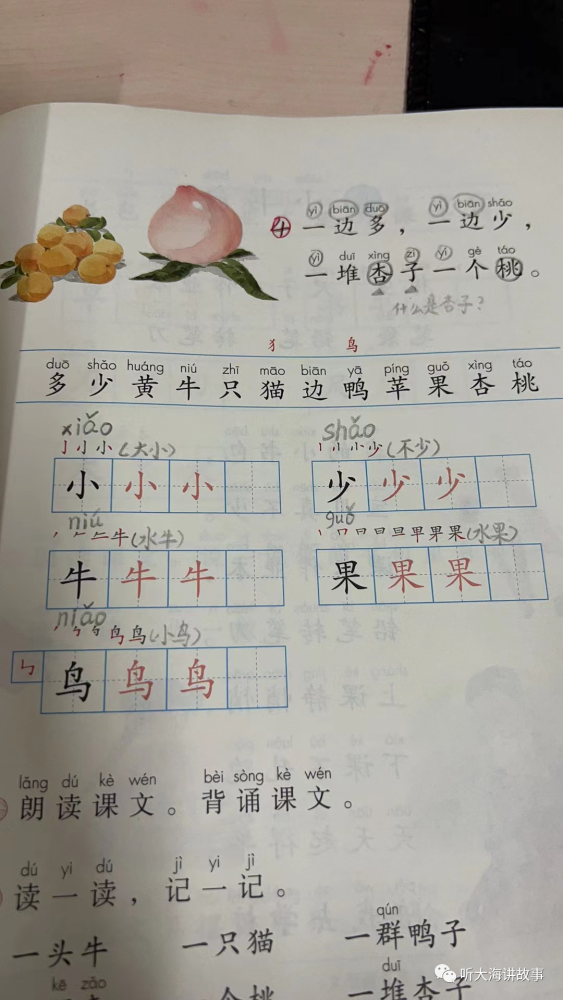 yì biān duō yì biān shǎo
④一边多，一边少，
yì duī xìng zi yí gè táo
一堆杏子一个桃。
什么是杏子？
犭 鸟
duō shǎo huáng niú zhī māo biān yā píng guǒ xìng táo
多少黄牛只猫边鸭苹果杏桃
xiǎo shǎo
(大小) (不少)
小小小 少少少
niú guǒ
(水牛) (水果)
牛牛牛 果果果
niǎo
(小鸟)
鸟鸟鸟
lǎng dú kè wén bèi sòng kè wén
朗读课文。背诵课文。
dú yi dú jì yi jì
读一读，记一记。
qún
一头牛 一只猫 一群鸭子
kē zǎo duī
个桃 一堆杏子
听大海讲故事